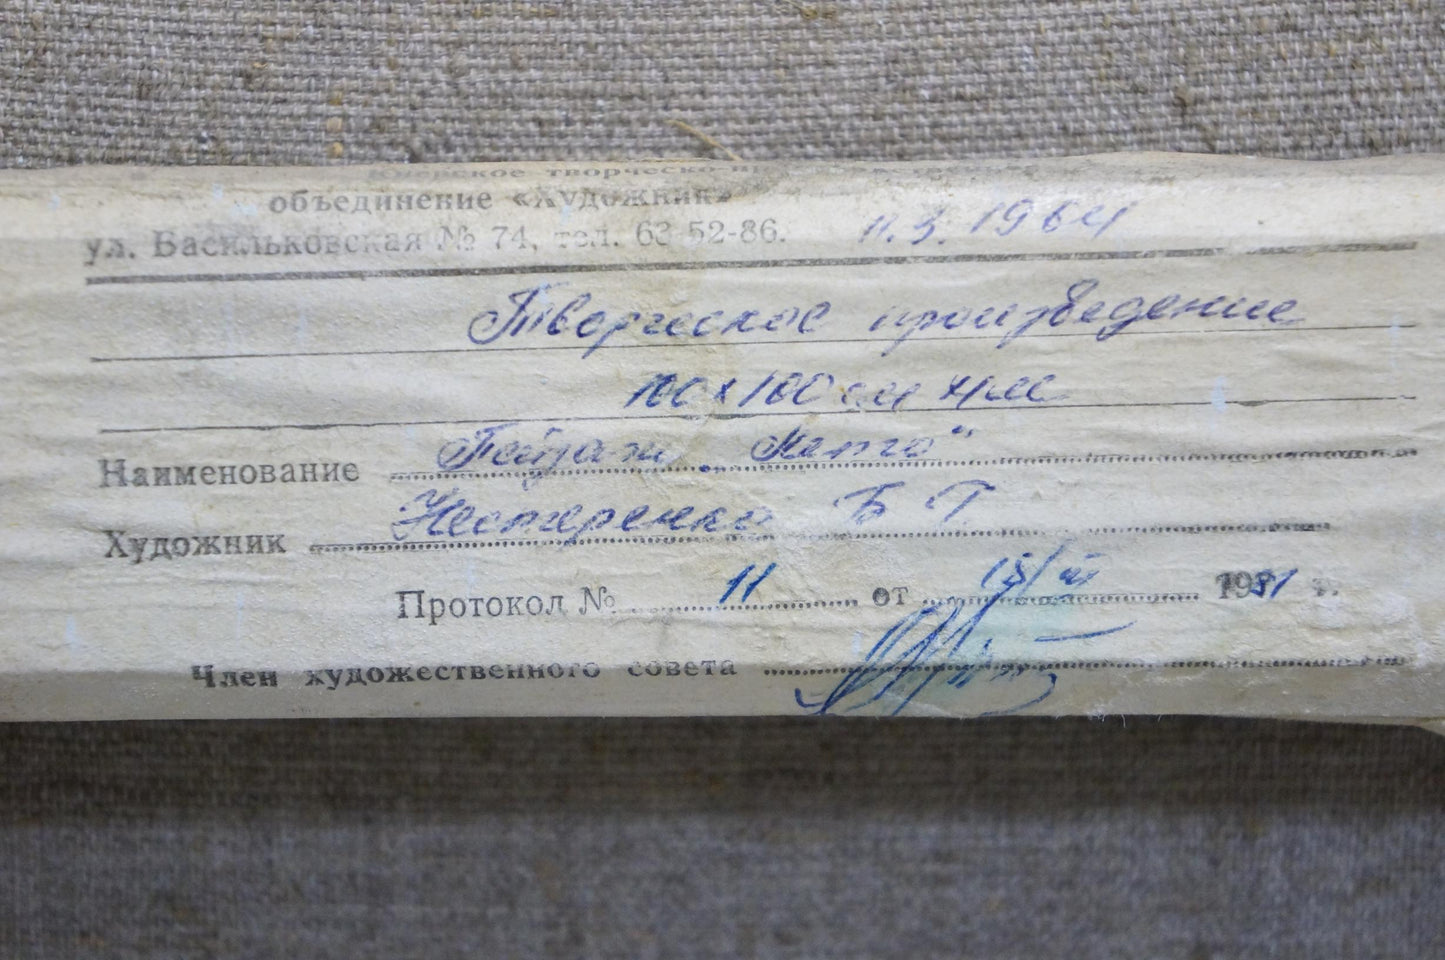 Киевское творческо-
объединение «Художник»
ул. Васильковская № 74, тел. 63-52-86. 11.3.1964
Творческое произведение
100х100 см хм
Наименование Пейзаж „Лето"
Художник Нестеренко Б Г
Протокол № 11 от 15/III 1981 г.
Член художественного совета